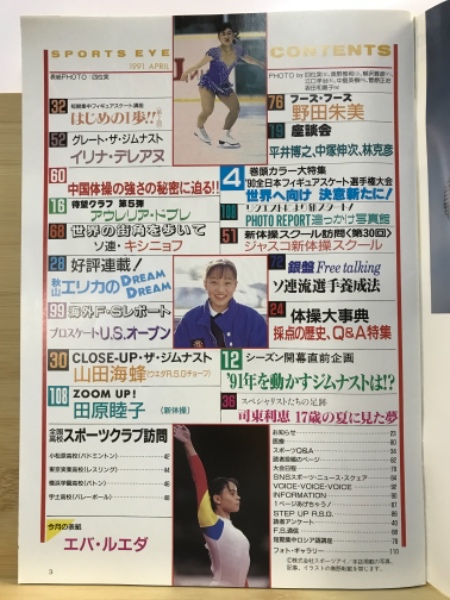 SPORTS EYE
1991 APRIL
CONTENTS
32
短期集中フィギュアスケート講座
はじめの1歩!!
52 グレート・ザ・ジムナスト
イリナ・デレアヌ
60
中国体操の強さの秘密に迫る!!
16 待望グラフ 第5弾
アウレリア・ドブレ
68 世界の街角を歩いて
ソ連・キシニョフ
28 好評連載!
秋山エリカのDREAM DREAM
99 海外F・Sレポート
プロスケートU.S.オープン
30 CLOSE-UP・ザ・ジムナスト
山田海蜂(ウエダR.S.Gチョーフ)
108 ZOOM UP!
田原睦子 (新体操)
全国高校スポーツクラブ訪問
小松原高校(バドミントン) 42
東京実業高校(レスリング) 44
横浜学園高校(バトン) 46
宇土高校(バレーボール) 48
今月の表紙
エバ・ルエダ
3
76 フーズ・フーズ
野田朱美
19 座談会
平井博之、中塚伸次、林克彦
4
巻頭カラー大特集
'90全日本フィギュアスケート選手権大会
世界へ向け 決意新たに!
PHOTO REPORT追っかけ写真館
51 新体操スクール訪問〈第30回〉
ジャスコ新体操スクール
72 銀盤Free talking
ソ連流選手養成法
24 体操大事典
採点の歴史、Q&A特集
12 シーズン開幕直前企画
'91年を動かすジムナストは!?
36 スペシャリストたちの足跡
司東利恵 17歳の夏に見た夢
お知らせ
医療
スポーツQ&A
読者投稿のページ
大会日程
SNSスポーツ・ニュース・スクェア
VOICE・VOICE・VOICE
INFORMATION
1ページあげちゃう!
STEP UP R.S.G.
読者アンケート
F.S.通信
短期集中ロシア語講座
フォト・ギャラリー 110
©株式会社スポーツアイ/本誌掲載の写真、
記事、イラストの無断転載を禁じます。